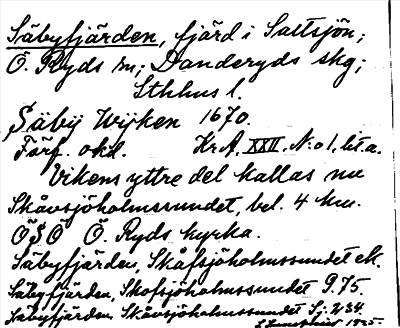 Säbyfjärden, fjärd i Saltsjön;
Ö. Ryds sn; Danderyds skg;
Sthhus l.
Säby Wijken 1670.
Förf. okd. Kr.A. XXII. N:o 1, lit a.
Vikens yttre del kallas nu
Skåvsjöholmssundet, bel. 4 km.
ÖSÖ Ö. Ryds kyrka.
Säbyfjärden, Skåfsjöholmssundet ek.
Säbyfjärden, Skofsjöholmssundet G.75.
Säbyfjärden, Skåvsjöholmssundet Sj. 234.
1925.